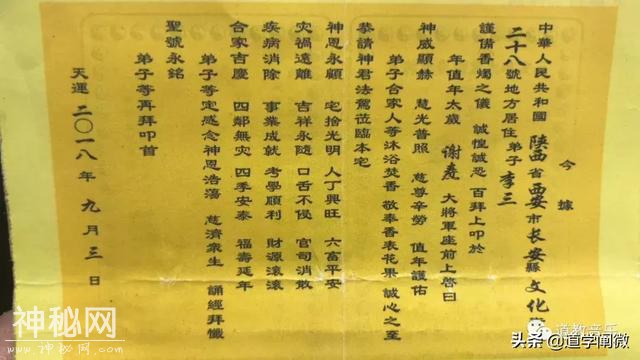 今據
中華人民共和國 陝西省西安市长安縣文化
二十八號地方居住弟子 李三
謹備香燭之儀 誠惶誠恐 百拜上叩於
年值年太歲 谢 大將軍座前上啓曰
神威顯赫 慈光普照 慈尊辛勞 值年護佑
弟子合家人等沐浴焚香 敬奉香表花果 誠心之至
恭請神君法駕莅臨本宅
神恩永顧 宅捨光明 人丁興旺 六富平安
灾禍遠離 吉祥永隨 口舌不侵 官司消散
疾病消除 事業成就 考學順利 財源滚滚
合家吉慶 四鄰無灾 四季安泰 福壽延年
弟子等定感念神恩浩蕩 慈濟衆生 誦經拜懺
聖號永銘
弟子等再拜叩首
天運 二〇一八年 九月三日
神秘网
WWW.SHENMIW.COM
道教音乐
头条 @道学阐微